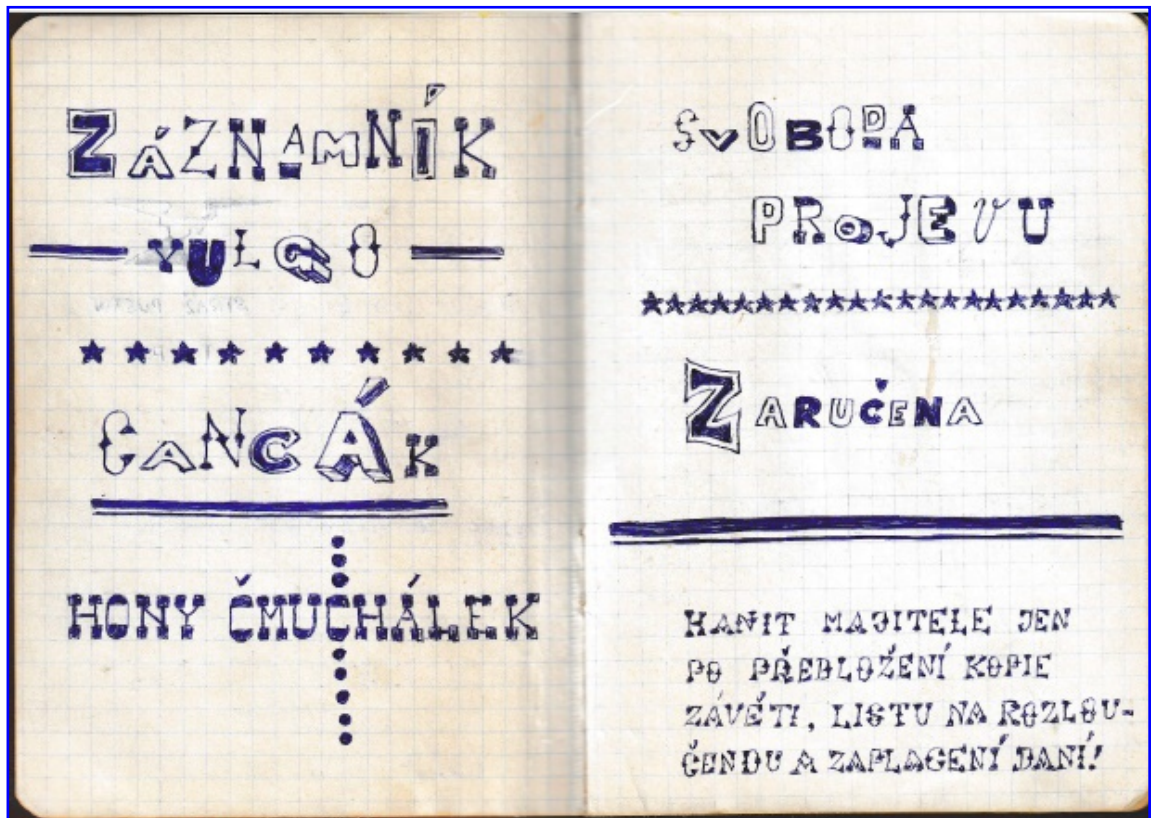 ZÁZNAMNÍK
VULGO
CANCÁK
HONY ČMUCHÁLEK
SVOBODA
PROJEVU
ZARUČENA
HANIT MAJITELE JEN
PO PŘEDLOŽENÍ KOPIE
ZÁVĚTI, LISTU NA ROZLOU-
ČENDU A ZAPLACENÍ DANÍ!